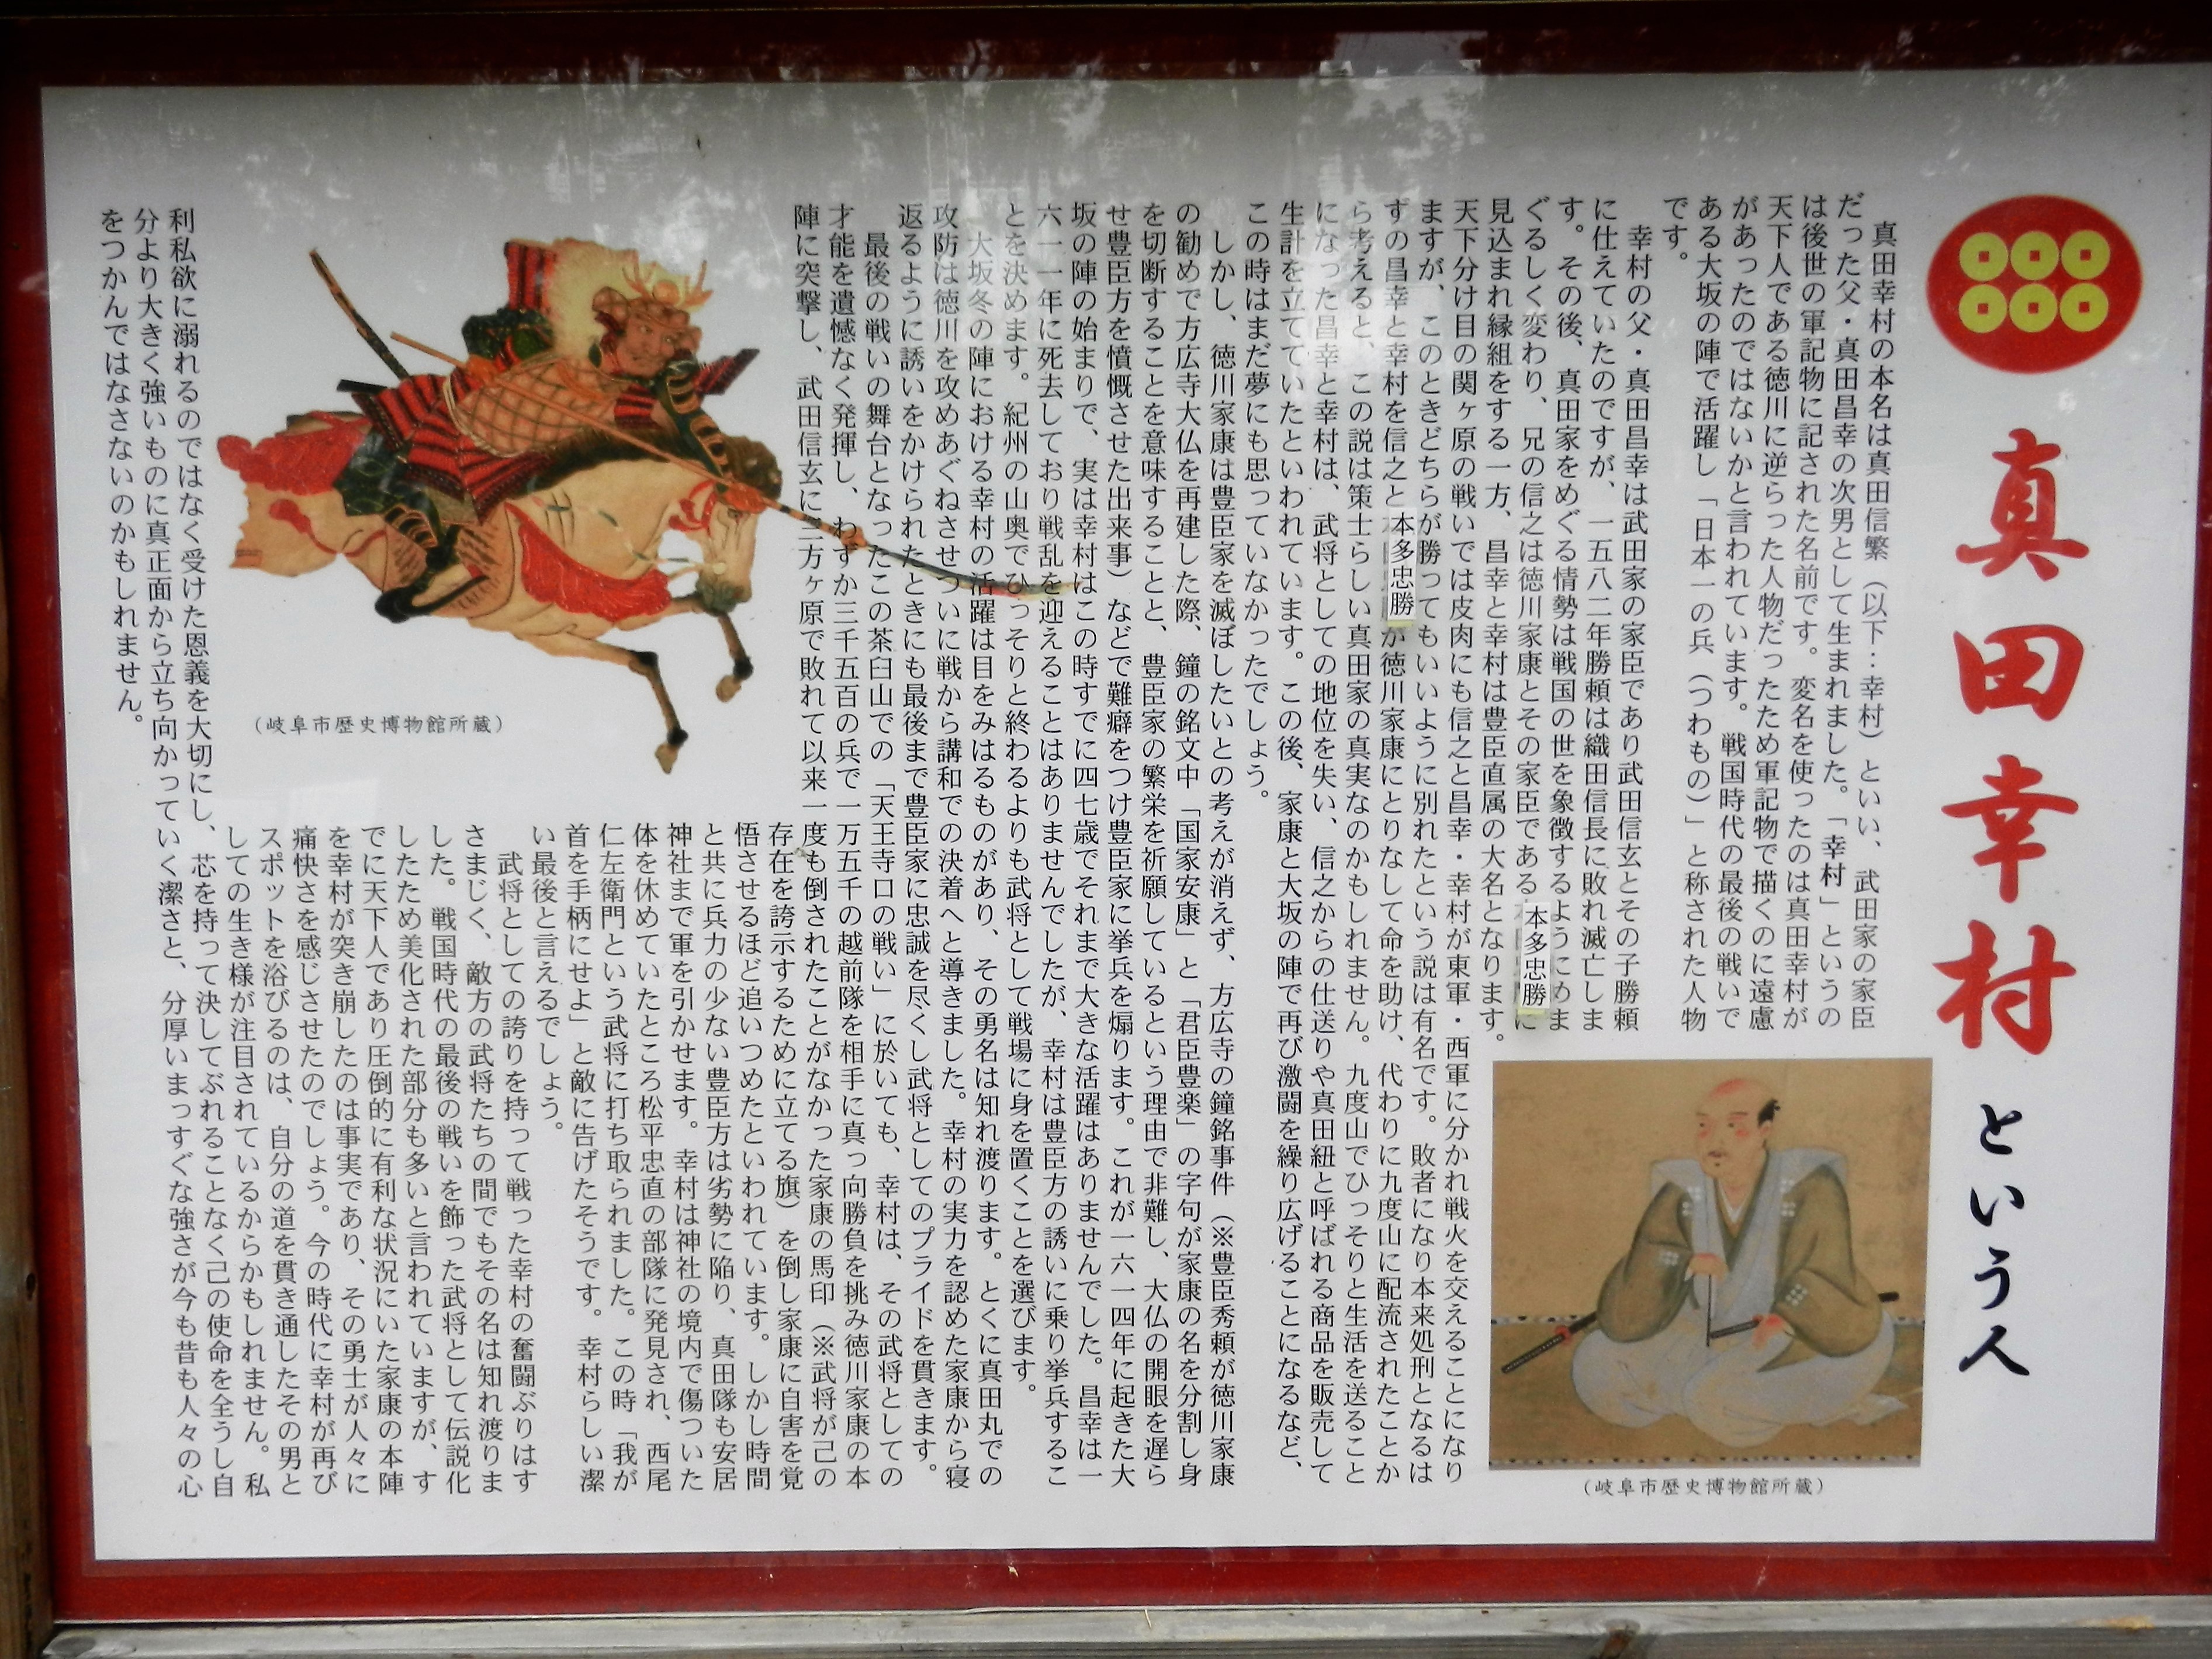 真田幸村という人
真田幸村の本名は真田信繁（以下：幸村）といい、武田家の家臣
だった父・真田昌幸の次男として生まれました。「幸村」というの
は後世の軍記物に記された名前です。変名を使ったのは真田幸村が
天下人である徳川に逆らった人物だったため軍記物で描くのに遠慮
があったのではないかと言われています。戦国時代の最後の戦いで
ある大坂の陣で活躍し「日本一の兵（つわもの）」と称された人物
です。
幸村の父・真田昌幸は武田家の家臣であり武田信玄とその子勝頼
に仕えていたのですが、一五八二年勝頼は織田信長に敗れ滅亡しま
す。その後、真田家をめぐる情勢は戦国の世を象徴するようにめま
ぐるしく変わり、兄の信之は徳川家康とその家臣である本多忠勝に
見込まれ縁組をする一方、昌幸と幸村は豊臣直属の大名となります。
天下分け目の関ヶ原の戦いでは皮肉にも信之と昌幸・幸村が東軍・西軍に分かれ戦火を交えることになり
ますが、このときどちらが勝ってもいいように別れたという説は有名です。敗者になり本来処刑となるは
ずの昌幸と幸村を信之と本多忠勝が徳川家康にとりなして命を助け、代わりに九度山に配流されたことか
ら考えると、この説は策士らしい真田家の真実なのかもしれません。九度山でひっそりと生活を送ること
になった昌幸と幸村は、武将としての地位を失い、信之からの仕送りや真田紐と呼ばれる商品を販売して
生計を立てていたといわれています。この後、家康と大坂の陣で再び激闘を繰り広げることになるなど、
この時はまだ夢にも思っていなかったでしょう。
しかし、徳川家康は豊臣家を滅ぼしたいとの考えが消えず、方広寺の鐘銘事件（※豊臣秀頼が徳川家康
の勧めで方広寺大仏を再建した際、鐘の銘文中「国家安康」と「君臣豊楽」の字句が家康の名を分割し身
を切断することを意味することと、豊臣家の繁栄を祈願しているという理由で非難し、大仏の開眼を遅ら
せ豊臣方を憤慨させた出来事）などで難癖をつけ豊臣家に挙兵を煽ります。これが一六一四年に起きた大
坂の陣の始まりで、実は幸村はこの時すでに四七歳でそれまで大きな活躍はありませんでした。昌幸は一
六一一年に死去しており戦乱を迎えることはありませんでしたが、幸村は豊臣方の誘いに乗り挙兵するこ
とを決めます。紀州の山奥でひっそりと終わるよりも武将として戦場に身を置くことを選びます。
大坂冬の陣における幸村の活躍は目をみはるものがあり、その勇名は知れ渡ります。とくに真田丸での
攻防は徳川を攻めあぐねさせついに戦から講和での決着へと導きました。幸村の実力を認めた家康から寝
返るように誘いをかけられたときにも最後まで豊臣家に忠誠を尽くし武将としてのプライドを貫きます。
最後の戦いの舞台となったこの茶臼山での「天王寺口の戦い」に於いても、幸村は、その武将としての
才能を遺憾なく発揮し、わずか三千五百の兵で一万五千の越前隊を相手に真っ向勝負を挑み徳川家康の本
陣に突撃し、武田信玄に三方ヶ原で敗れて以来一度も倒されたことがなかった家康の馬印（※武将が己の
存在を誇示するために立てる旗）を倒し家康に自害を覚
悟させるほど追いつめたといわれています。しかし時間
と共に兵力の少ない豊臣方は劣勢に陥り、真田隊も安居
神社まで軍を引かせます。幸村は神社の境内で傷ついた
体を休めていたところ松平忠直の部隊に発見され、西尾
仁左衛門という武将に打ち取られました。この時「我が
首を手柄にせよ」と敵に告げたそうです。幸村らしい潔
い最後と言えるでしょう。
武将としての誇りを持って戦った幸村の奮闘ぶりはす
さまじく、敵方の武将たちの間でもその名は知れ渡りま
した。戦国時代の最後の戦いを飾った武将として伝説化
したため美化された部分も多いと言われていますが、す
でに天下人であり圧倒的に有利な状況にいた家康の本陣
を幸村が突き崩したのは事実であり、その勇士が人々に
痛快さを感じさせたのでしょう。今の時代に幸村が再び
スポットを浴びるのは、自分の道を貫き通したその男と
しての生き様が注目されているからかもしれません。私
利私欲に溺れるのではなく受けた恩義を大切にし、芯を持って決してぶれることなく己の使命を全うし自
分より大きく強いものに真正面から立ち向かっていく潔さと、分厚いまっすぐな強さが今も昔も人々の心
をつかんではなさないのかもしれません。
（岐阜市歴史博物館所蔵）
（岐阜市歴史博物館所蔵）